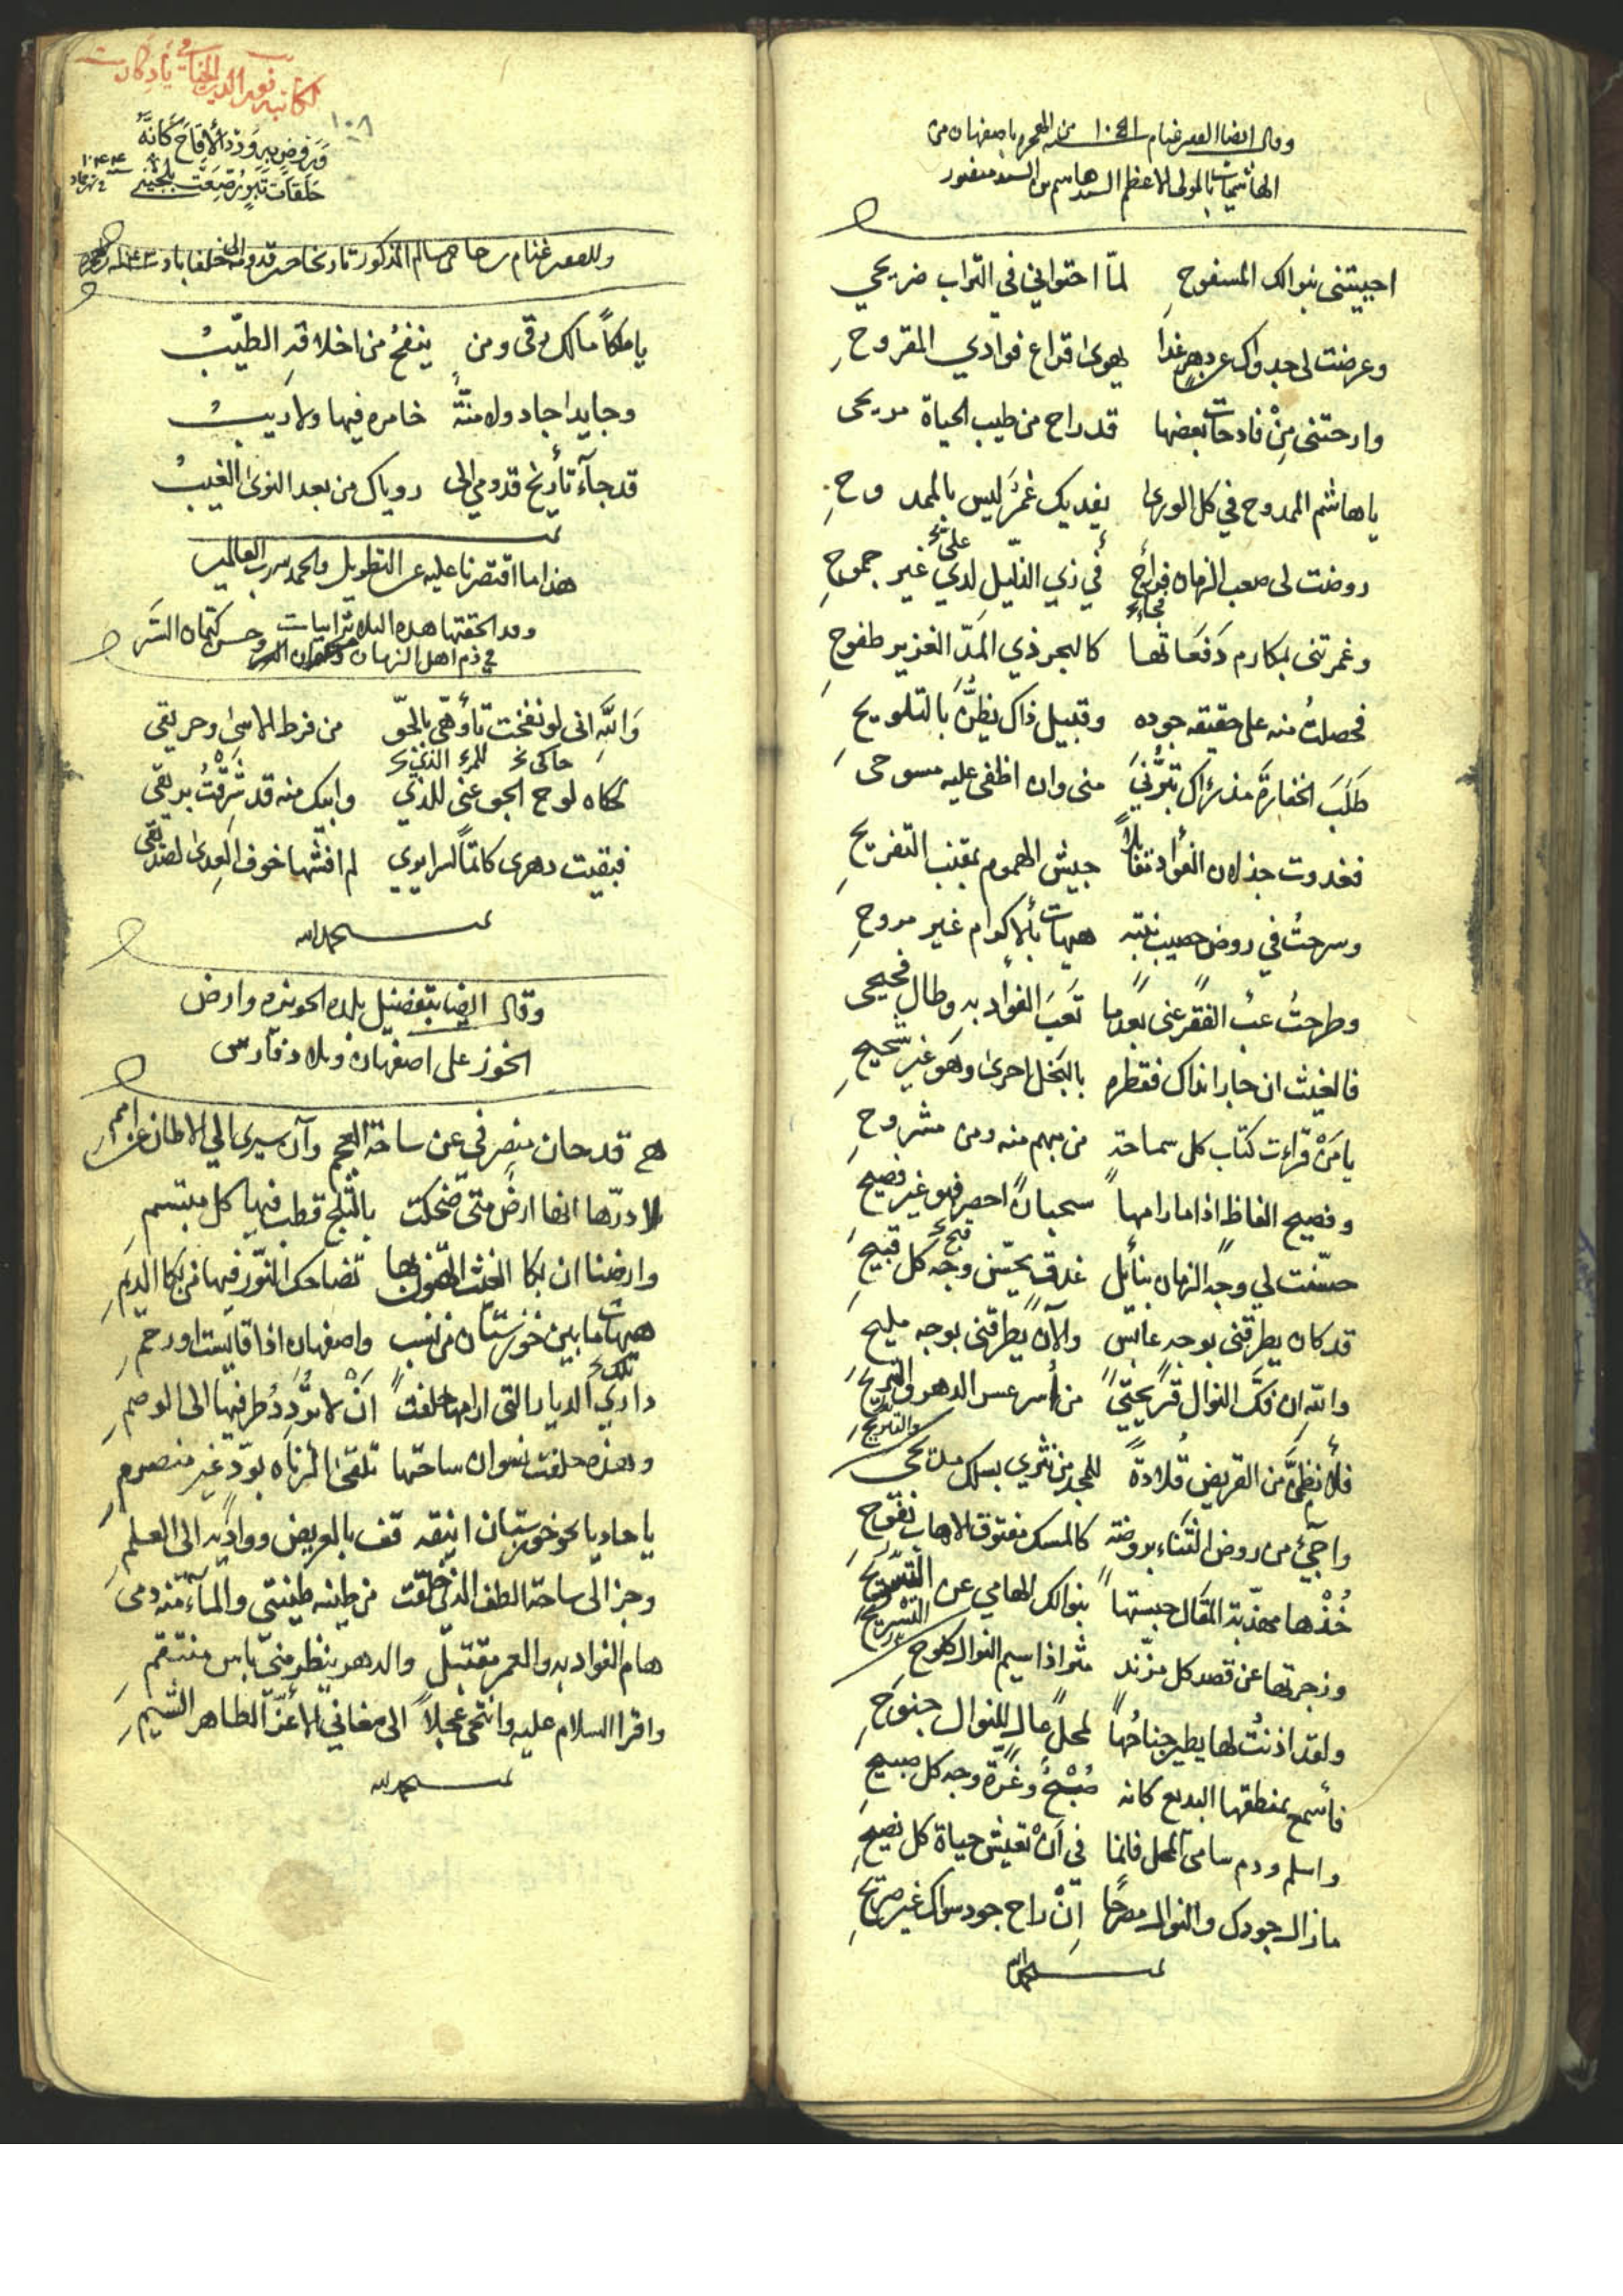 وقال ايضا الفقير غنام سنه من الهجره باصفهان من
الهاشميات بالمولى الاعظم السيد هاشم بن السيد منصور
احييتني بنوالك المسفوحِ لمّا احتواني في التراب ضريحي
وعرضت لي جدواك عن دهر غدا يهوى اقراع فوادي المقروحِ
وارحتني مِنْ فادحات بعضها قد راح من طيب الحياة مريحى
يا هاشم الممدوح في كل الورى يفديك غمرٌ ليس بالممدوحِ
روضت لى صعب الزمان فراح في زي الذليل لدي غير جموحِ
وغمرتنى بمكارم دَفَعَاتها كالبحر ذي المَدّ الغزير طفوحِ
فحصلتُ منه على حقيقه جوده وقبيل ذاك بالتلويحِ
طَلَبَ الخفارةَ منى وان اطفى عليه مسوحى
فغدوت جذلان الفؤاد جيش الهموم بمقنب التفريحِ
وسرحتُ في روض خصيب نبته هيهات بالاكوام غير مروحِ
وطرحتُ عبْ الفقر عنى بعدما تَعَبَ الفواد به وطال فحيحى
فالغيث ان جارا نداك فقطره بالبخل احرى وهو غير شحيحِ
يا مَنْ قرأت كتاب كل سماحة من مبهم منه ومن مشروحِ
وفصيح الفاظٍ اذا ما رامها سحبان احصر فهو غير فصيحِ
حسّنت لي وجه الزمان بنأئل غدق يحسّن وجه كل قبيحِ
قد كان يطرقنى بوجه عابس والآن يطرقنى بوجه مليحِ
والله ان فكّ النوال من أسر عس الدهر والتبريحِ
فلأنظمنَّ من القريض قُلادةً للمجد من نثري بسلك مديحى
واجئ من روض الثناء بروضة كالمسك مفتوق الاهاب نفوحِ
خُذْها مهذبة المقال حبستها بنوالك الهامي عن التسريحِ
وزجرتها عن قصد كل مزند مثر اذا سيم النوال كلوحِ
ولقد اذنتُ لها يطير جناحُها لمحلّ عالٍ للنوال جنوحِ
فأسمح بمنطقها البديع كانه صُبْحٌ وغرّة وجه كل صبيحِ
واسلم ودم سامى المحل فانما في أنْ تعيش حياة كل نصيحِ
مازال جودك والنوال مصرحًا اِنْ راح جود سواك غير صريحِ
تمت بحمد الله
لكاتبه
١٠٨
وَرَوضٍ بِهِ وَرْدُ الأقَاحِ كَأنَّهُ
حَلَقَاتُ تِبْرٍ رُصِّعَتْ بلُجَيْنِ
وللفقير غنام المذكور تاريخا حين قدومه الى خلفاباد
يا ملكاً مالك رقي ومن ينفحُ من اخلاقه الطيّبُ
وجايدا جاد ولا منّةٌ خامره فيها ولا رَيبُ
قد جآء تأريخ قدومي الى روياك من بعد النوى الغيبُ
تمت
هذا ما اقتصرنا عليه عن التطويل والحمد لله رب العالمين
وقد الحقتها هذه الثلاثة ابيات
في ذم اهل الزمان وحسن كتمان السَّر
وَاللهِ انى لو نفخت تأوهى بالجوّ من فرط الاسىٰ وحريقى
حاكى نخ للمرء الذى نخ
لحكاه لوح الجو عنى للذي وابيك منه قد شَرِقْتُ بريقى
فبقيت دهرى كاتماً لسراير لم افشها خوف العِدىٰ لصديقى
تمت بحمد الله
وقال ايضا بتفضيل بلده الحويزه وارض
الخوز على اصفهان وبلاد فارس
قد حان منصرفى عن ساحة العجم وآن سيرى الى الاوطان عن امم
لا درّها انها ارضٌ متى ضحكت بالثلج قطب فيها كل مبتسمِ
وارضنا ان بكا الغيث الهتون بها تضاحك النوّر فيها من بكا الديَمِ
هيهات ما بين خوزستان من نسب واصفهان اذا قايست او رحمِ
داري الديار التى ارامها حلفت اَنْ لا تُرَدِّدُ طرفيها الى الوصمِ
وهذه حلفت نسوان ساحتها تلقى الزناه بودّ غير منصرمِ
يا حاديا نحو خوزستان اينقه قف بالعريض وواديه الى العلمِ
وجز الى ساحة الطف الذي خلقت من طينه طينتى والمآء منه دمى
هام الفواد به والعمر مقتبلٌ والدهر ينظر منّى باس منتقمِ
واقرا السلام عليه وانتحى عجلاً الى مغاني الأغرّ الطاهر الشيمِ
تمت بحمد الله